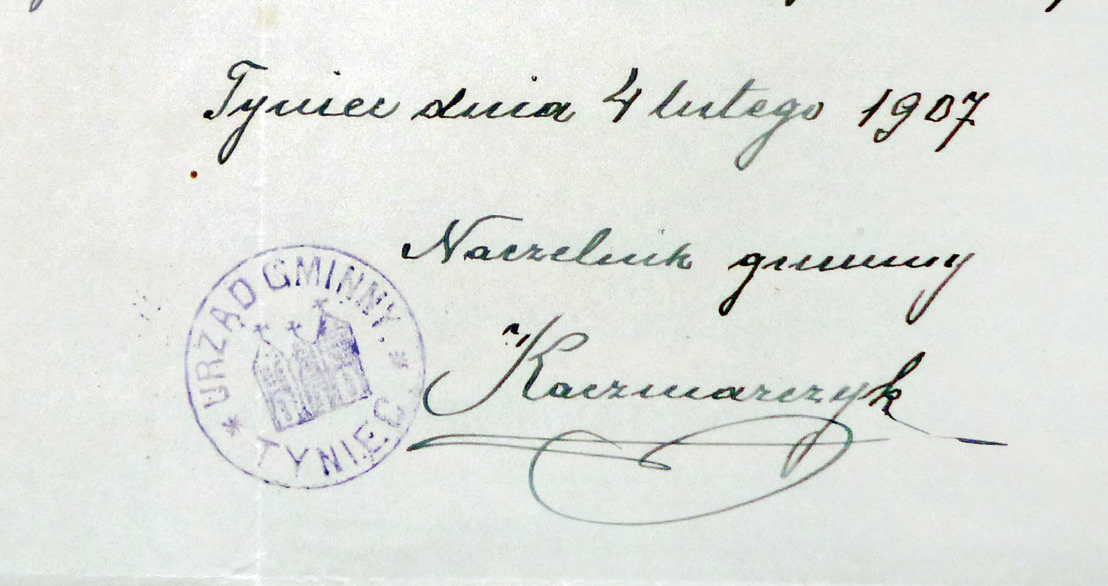 Tyniec dnia 4 lutego 1907
Naczelnik gminny
Kaczmarczyk
URZĄD GMINNY.
* TYNIEC *